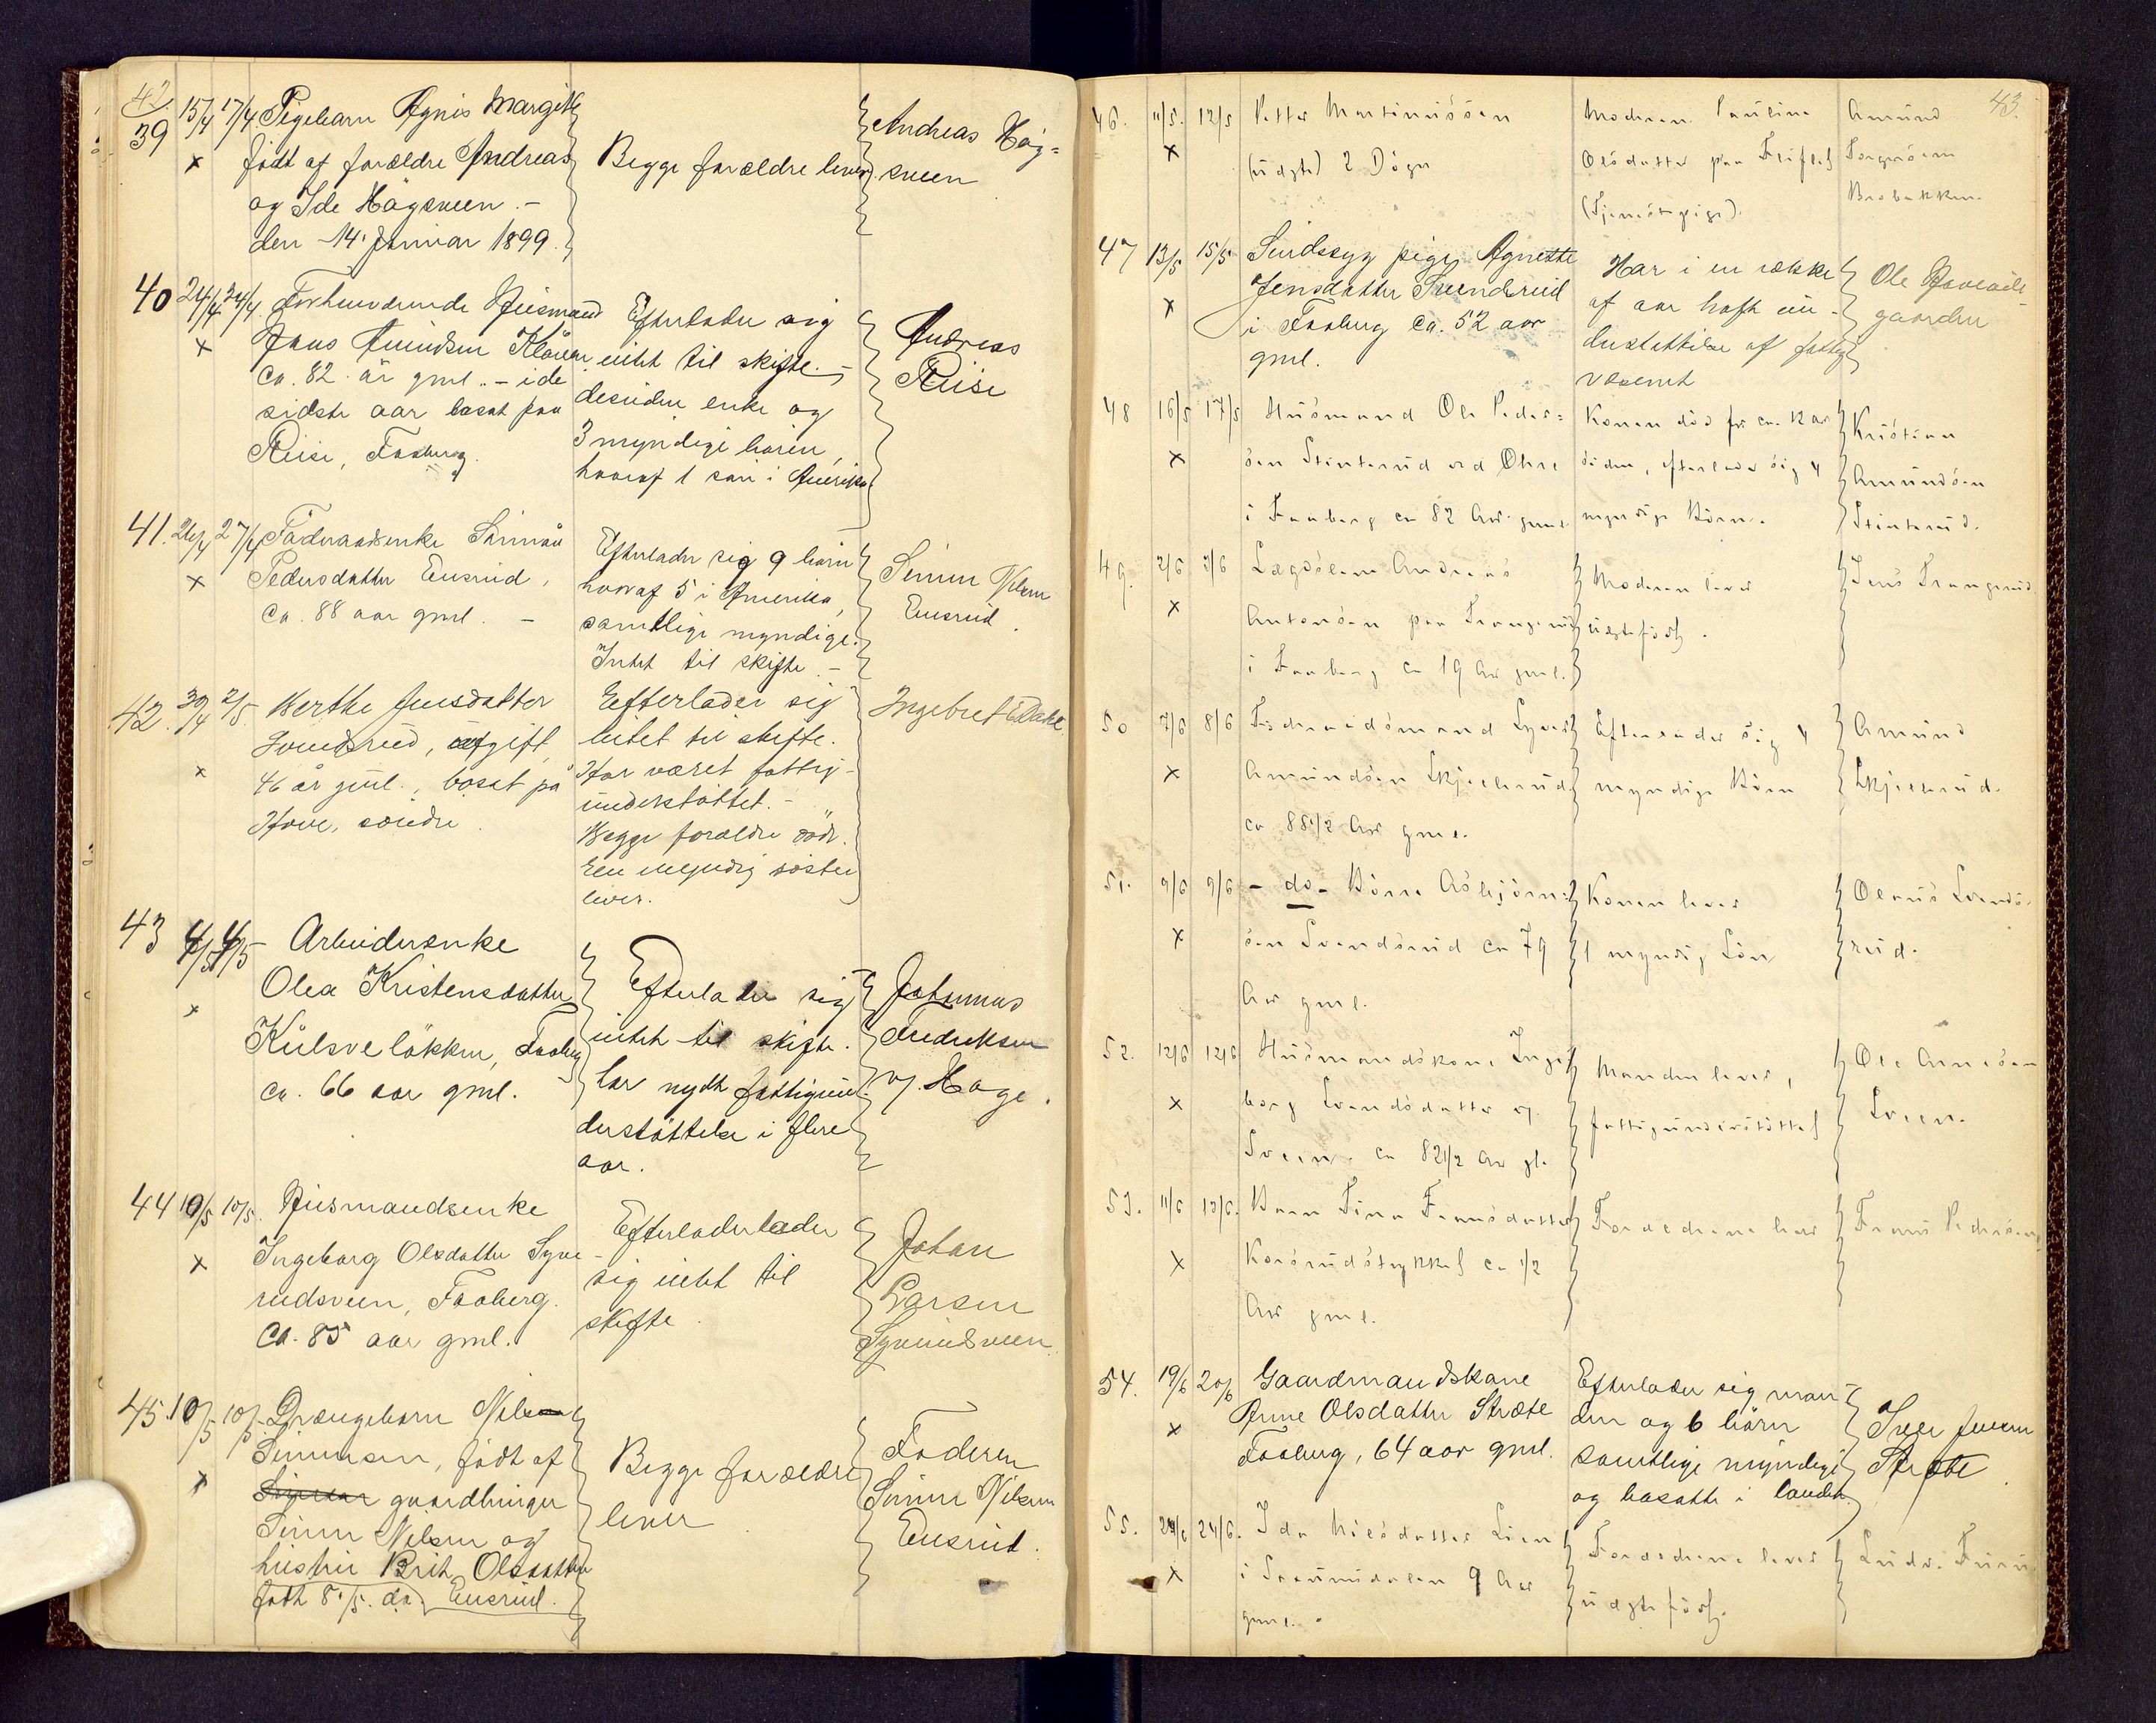 42.
39 15/4 17/4 Pigebarn Agnis Margith
x født af forældre Andreas
og Ide Hågsveen. -
den 14' Januar 1899.
Begge forældre lever.
Andreas Håg=
sveen
40 24/4 24/4. Forhenværende Husmand
x Hans Amundsen
ca. 82 år gml. - i de
sidste aar bosat paa
Riise, Faaberg.
Efterlader sig
intet til skifte. -
desuden enke og
3 myndige børn,
hvoraf 1 søn i Amerika
Andreas
Riise
41. 26/4 27/4 Føderaadsenke
x Pedersdatter Ensrud,
ca. 88 aar gml. -
Efterlader sig 9 børn
hvoraf 5 i Amerika,
samtlige myndige.
Intet til skifte -
Simen Nilsen
Ensrud.
42. 30/4 2/5. Berthe Jensdatter
ugift,
x 46 år gml., bosat på
Hove, søndre.
Efterlader sig
intet til skifte.
Har været fattig-
understøttet. -
Begge forældre død.
Een myndig søster
lever.
Ingebret
43 4/5 4/5 Arbeiderenke
Olea Kristensdatter
x Kulsveløkken, Faaberg
ca. 66 aar gml.
Efterlader sig
intet til skifte.
har nydt fattigun-
derstøttelse i flere
aar.
Johannes
Fredriksen
v/ Hage.
44 10/5 10/5. Husmandsenke
x Ingeborg Olsdatter Syve-
rudsveen, Faaberg.
Ca. 85 aar gml.
Efterladerlader
sig intet til
skifte.
Johan
Larsen
45. 10/5 10/5. Drengebarn Nils
Simensen, født af
x gaardbruger
Simen Nilsen og
hustru Brit Olsdatter
født 8/5. da. Ensrud.
Begge forældre
lever
Faderen
Simen Nilsen
Ensrud.
43.
46. 11/5. 12/5 Petter Martiniussen
x (uægte) 2 Døgn
Moderen Pauline
Olsdatter paa
(Tjenestepige).
Amund
Brobakken.
47 13/5 15/5 Sindssyg pige Agnethe
x Jensdatter Svendsrud
i Faaberg ca. 52 aar
gml.
Har i en række
af aar haft un-
derstøttelse af fattig
væsenet
Ole
gaarden
48 16/5 17/5 Husmand Ole Peder=
x sen Stinterud ved Ohre
i Faaberg ca 82 Aar gml
Konen død for ca. 12 aar
siden, efterlader sig 4
myndige Børn.
Kristian
Amundsen
Stinterud.
49. 2/6 3/6 Lægdslem Andreas
x Antonsen paa
i Faaberg ca 19 Aar gml.
Moderen lever
uægtefødt.
Jens
50 7/6 8/6 Føderaadsmand Syver
x Amundsen Skjellerud
ca 88 1/2 Aar gml.
Efterlader sig 4
myndige Børn
Amund
Skjellerud.
51. 9/6 9/6 - do - Børre Asbjørn=
x sen Svendsrud ca 79
Aar gml.
Konen lever
1 myndig Søn
Olaus Svends-
rud.
52. 12/6 12/6 Husmandskone Inge=
x borg Svendsdatter v/
Sveen. ca 82 1/2 Aar gl.
Manden lever,
fattigunderstøttet
Ole Arnesen
Sveen.
53. 11/6 13/6. Barn Tina Fransdatter
x Korsrudstykket ca 1/2
Aar gml.
Forældrene lever
Frans Pedersen
54. 19/6 20/6 Gaardmandskone
x Anne Olsdatter Stræte
Faaberg, 64 aar gml.
Efterlader sig man-
den og 6 børn
samtlige myndige
og bosatte i landet.
Iver Jensen
Stræte
55. 24/6 24/6. Ida Nilsdatter Lien
x i Saxumdalen 9 Aar
gml.
Forældrene lever
uægtefødt.
Ludv. Furu